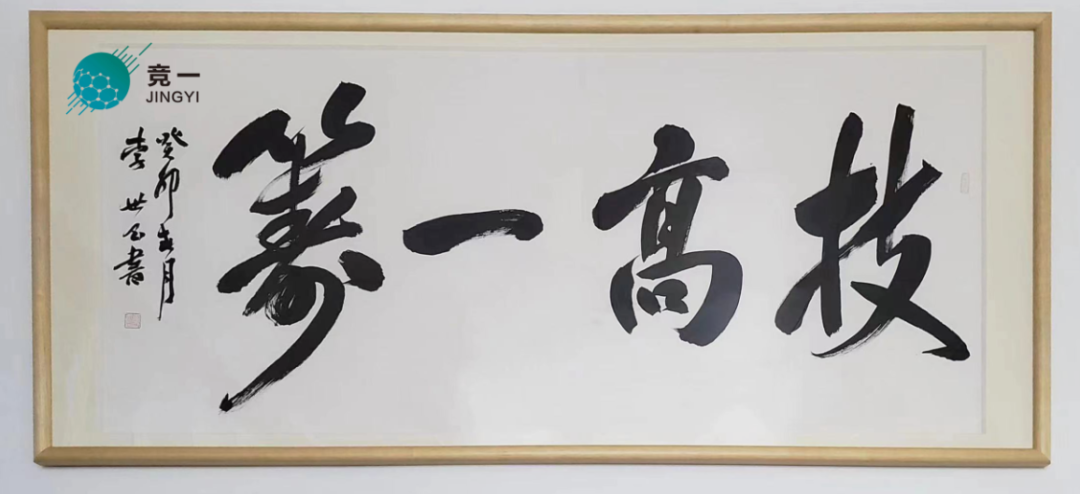 竞一
JINGYI
技高一筹
癸卯春月
李世書